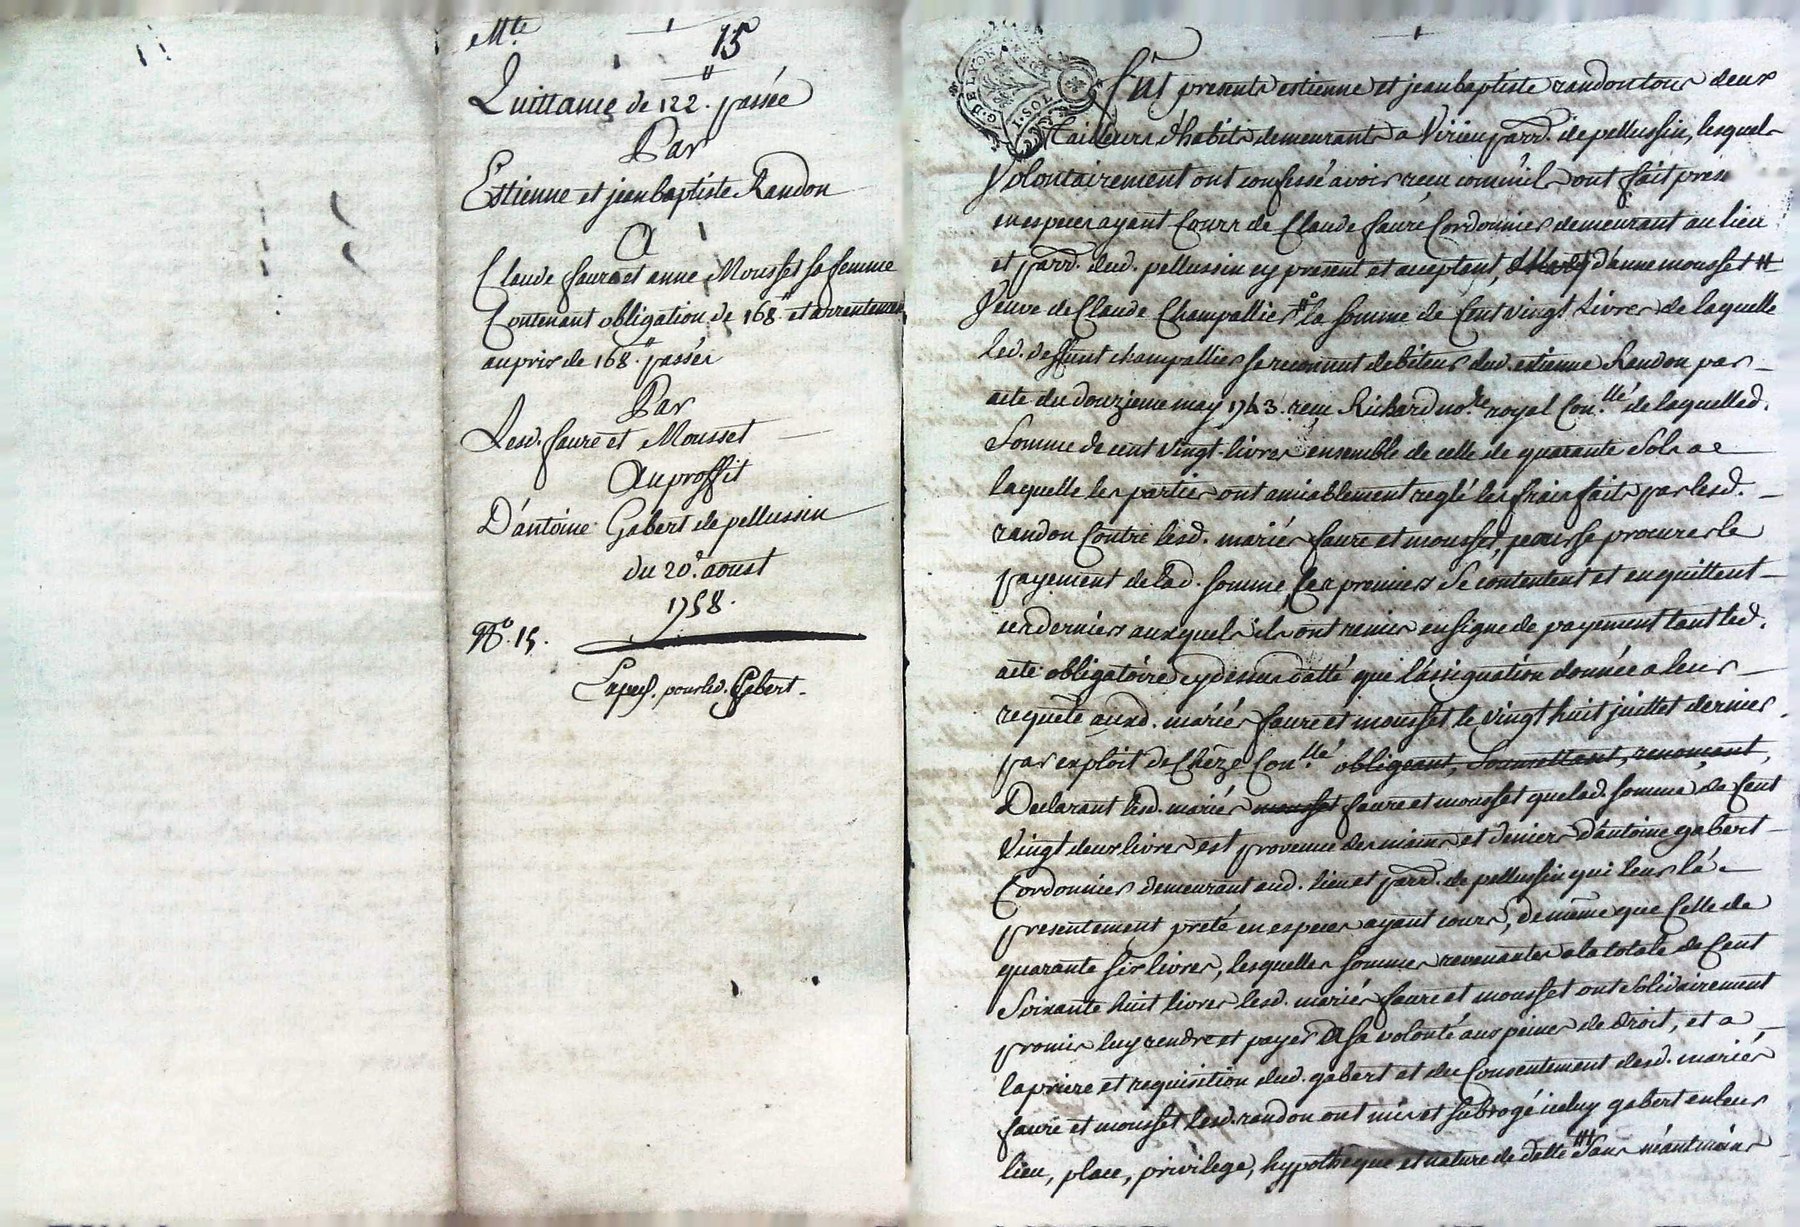 Mte
15
Quittance de 122# passée
Par
Estienne et jean baptiste Randon
A
Claude faure et anne Mousset sa femme
Contenant obligation de 168# et arrentement
au prix de 168# passée
Par
Lesd. faure et Mousset
Au proffit
D'antoine Gabert de pellussin
du 20e. aoust
1758.
No. 15.
Exped. pour led. Gabert.
G. DE LYON
1. SOL
Fut presents estienne et jean baptiste randon tous deux
Tailleurs d'habits demeurants a Virieu parr. de pellussin, lesquels
Volontairement ont confessé avoir receu comm'ils ont fait pres
en especes ayant Cours de Claude faure Cordonnier demeurant au lieu
et parr. dud. pellussin cy present et aceptant, d'anne mousset #
Veuve de Claude Champallier la somme de Cent vingt Livres de laquelle
led. deffunt champallier se reconnut debiteur dud. estienne Randon par
acte du douzieme may 1743. receu Richard nore. royal Con.llé de laquelled.
Somme de cent vingt livres ensemble de celle de quarante Sols a
laquelle les parties ont amiablement reglé les frais faits par lesd.
randon Contre lesd. mariés faure et mousset, pour se procurer le
payement de lad. somme, les premiers se contentent et en quittent
ces derniers auxquels ils ont remis en signe de payement tant led.
acte obligatoire cy dessus datté que l'assignation donnée a leur
requete auxd. mariés faure et mousset le vingt huit juillet dernier
par exploit de Chêze Con.llé obligeant, Soumettant, renonceant,
Declarant lesd. mariés mousset faure et mousset que lad. somme de Cent
Vingt deux livres est provenue des mains et deniers d'antoine gabert
Cordonnier demeurant aud. lieu et parr. de pellussin qui leur l'a
presentement preté en especes ayant cours, de même que Celle de
quarante six livres, lesquelles sommes revenantes a la totale de Cent
Soixante huit livres lesd. mariés faure et mousset ont solidairement
promis luy rendre et payer a sa volonté aux peines de droit, et a
la priere et requisition dud. gabert et du Consentement desd. mariés
faure et mousset lesd. randon ont mis et subrogé iceluy gabert en leur
lieu, place, privilege, hypotheque et nature de dette # sans néantmoins